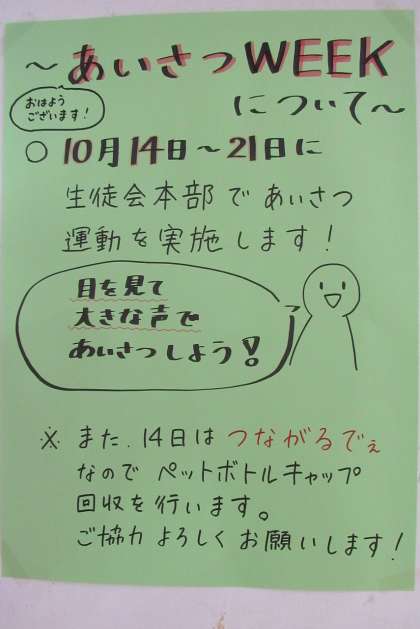 ～あいさつWEEK
について～
おはよう
ございます！
○ 10月14日～21日に
生徒会本部であいさつ
運動を実施します！
目を見て
大きな声で
あいさつしよう！
※ また、14日は つながるでぇ
なので ペットボトルキャップ
回収を行います。
ご協力 よろしく お願いします！